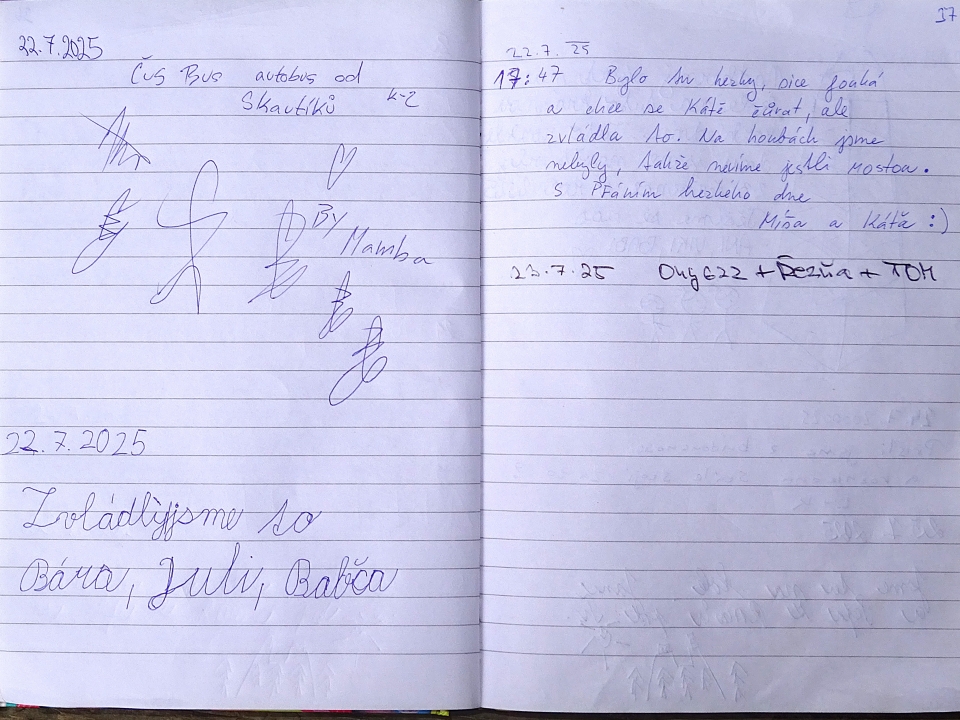 22.7.2025
Čus Bus autobus od
Skautíků K-2
By
Mamba
22.7.2025
Zvládly jsme to
Bára, Juli, Babča
37
22.7.25
17:47 Bylo tu hezky, sice fouká
a chce se Kátě čůrat, ale
zvládla to. Na houbách jsme
nebyly, takže nevíme jestli rostou.
S Přáním hezkého dne
Míša a Káťa :)
23.7.25 + TOM